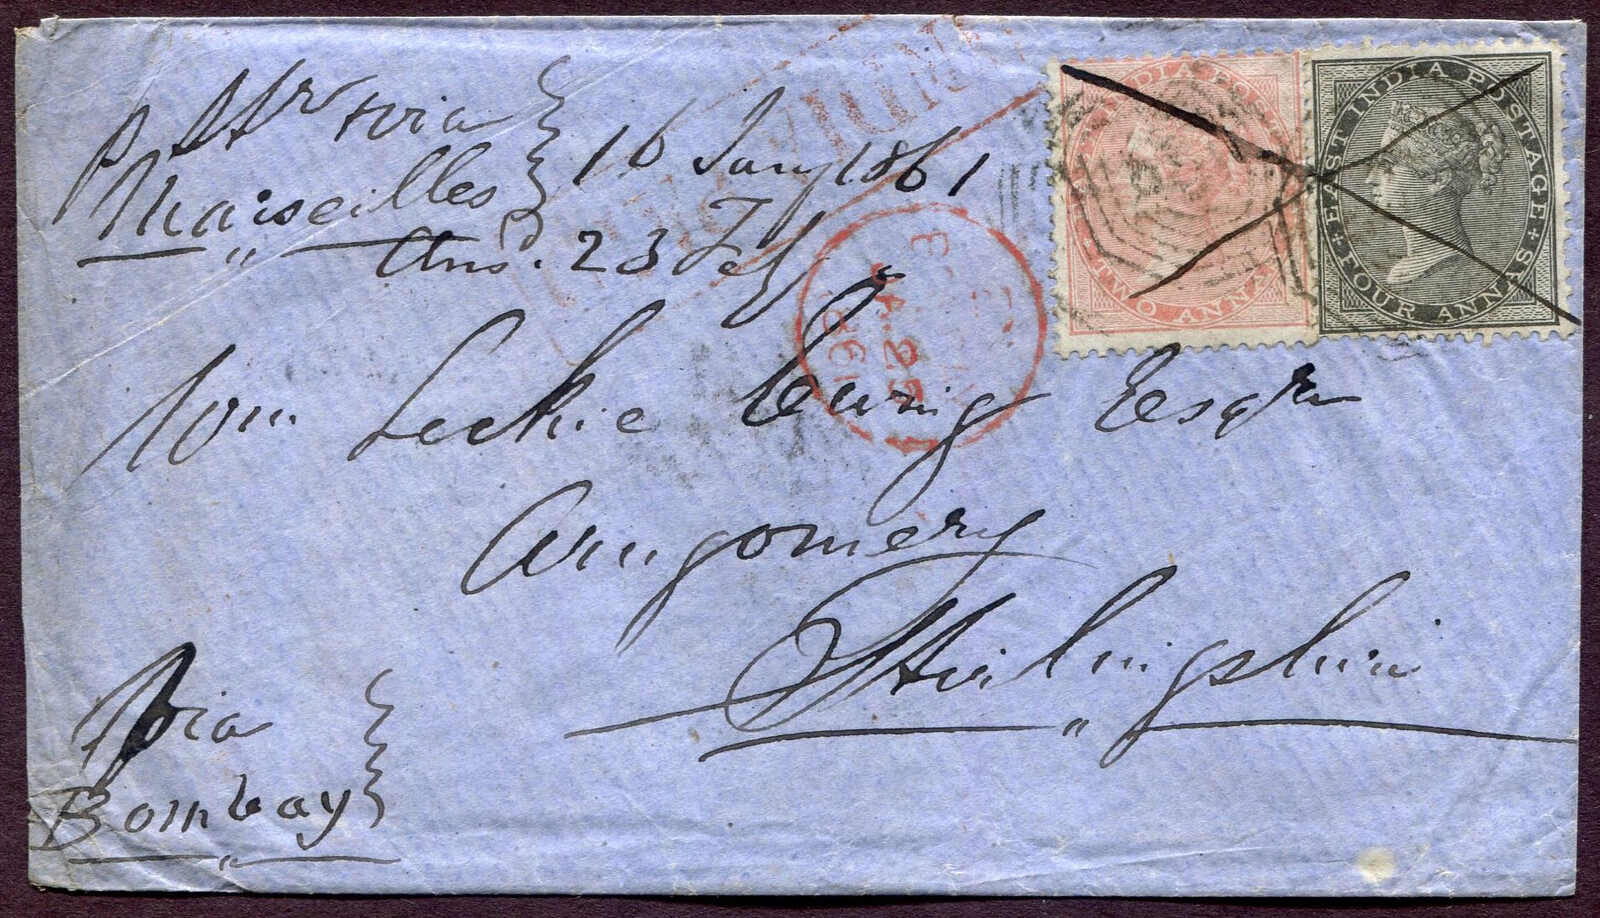 p Str via
Marseilles
16 Jany 1861
Ans.d 23 Feb
INDIA
EAST INDIA POSTAGE
TWO ANNAS
EAST INDIA POSTAGE
FOUR ANNAS
JA. 25
1861
Wm Leckie Ewing Esqre
Arngomery
Stirlingshire
Via
Bombay